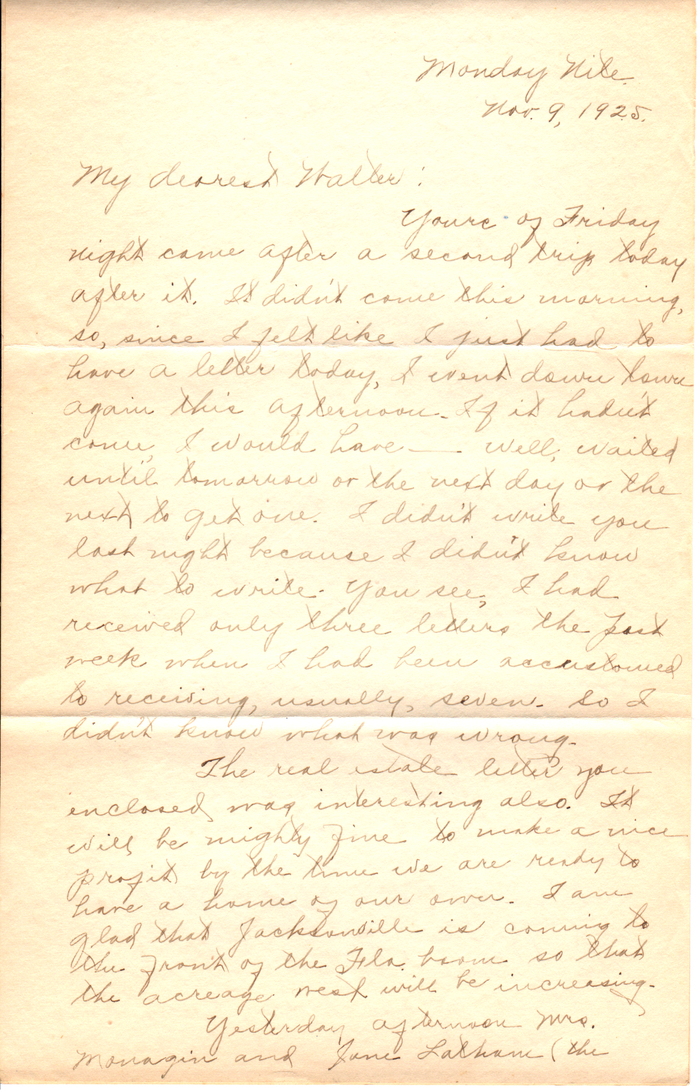 Monday Nite.
Nov. 9, 1925.
My dearest Walter:
Yours of Friday
night came after a second trip today
after it. It didn't come this morning,
so, since I felt like I just had to
have a letter today, I went down town
again this afternoon. If it hadn't
come, I would have — well, waited
until tomorrow or the next day or the
next to get one. I didn't write you
last night because I didn't know
what to write. You see, I had
received only three letters the past
week when I had been accustomed
to receiving, usually, seven. So I
didn't know what was wrong.
The real estate letter you
enclosed was interesting also. It
will be mighty fine to make a nice
profit by the time we are ready to
have a home of our own. I am
glad that Jacksonville is coming to
the front of the Fla. boom so that
the acreage west will be increasing.
Yesterday afternoon Mrs.
and Jane Latham (the